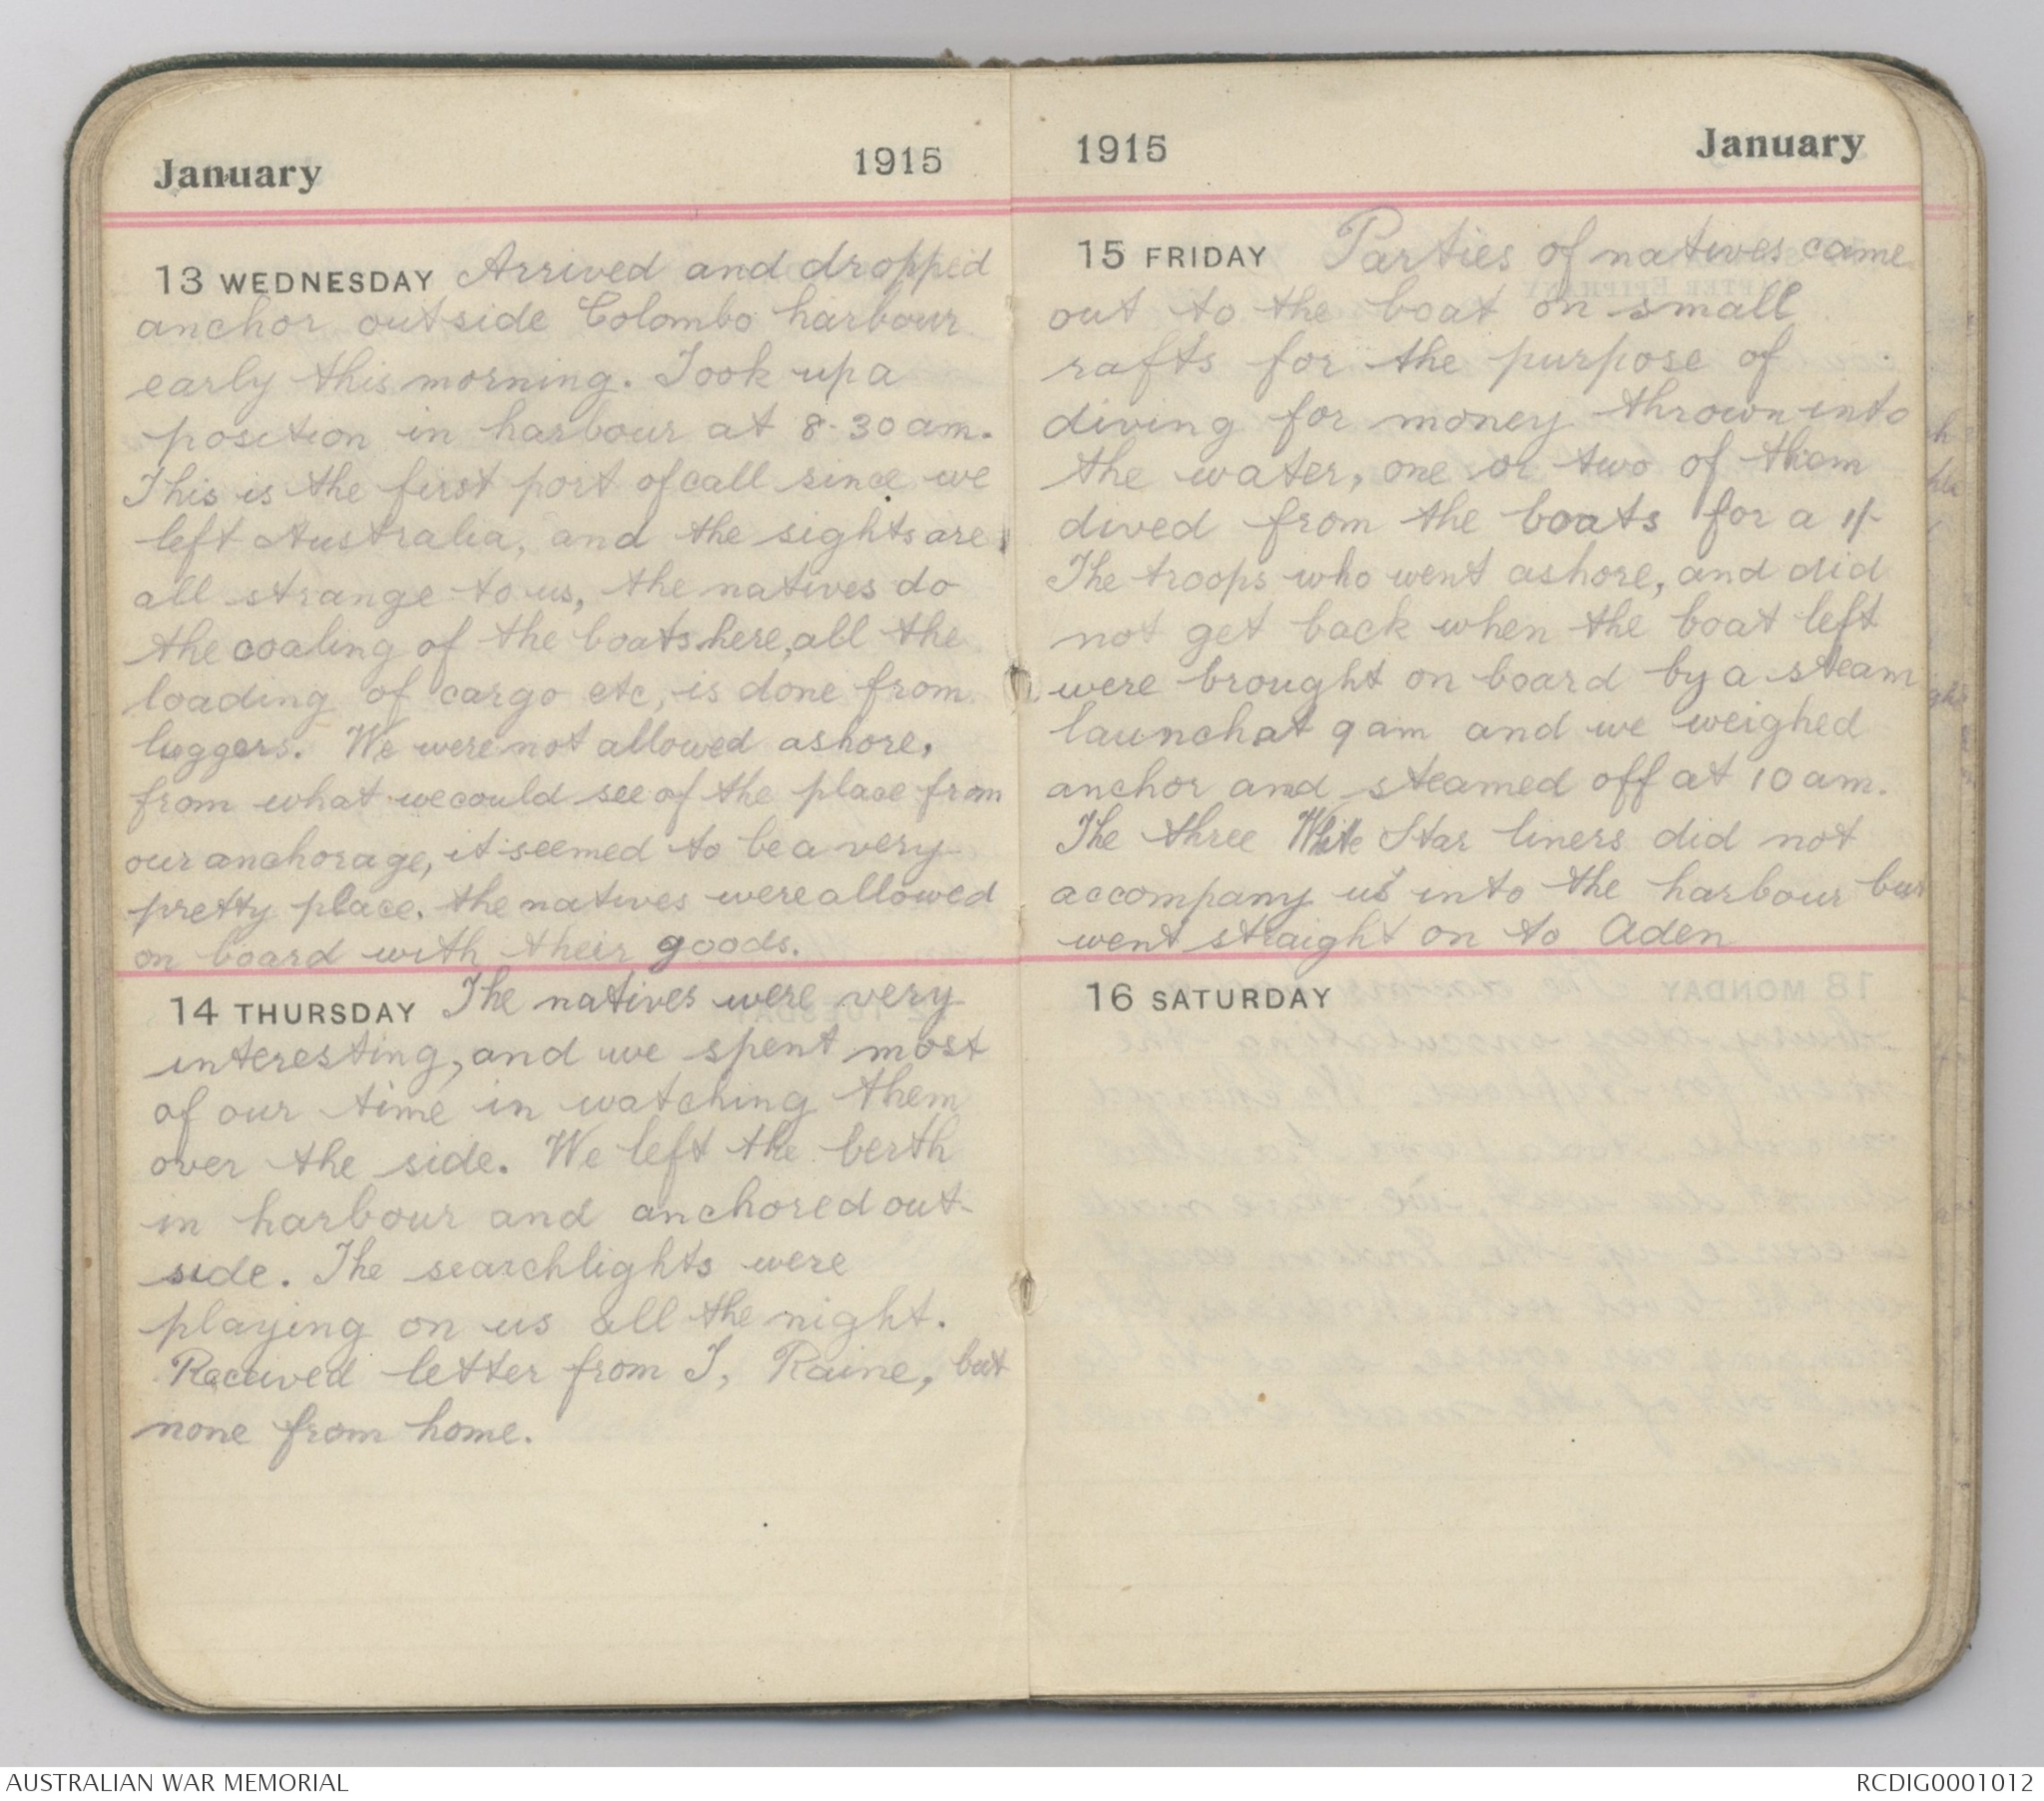 January 1915
13 WEDNESDAY Arrived and dropped
anchor outside Colombo harbour
early this morning. Took up a
position in harbour at 8-30 am.
This is the first port of call since we
left Australia, and the sights are
all strange to us, the natives do
the coaling of the boats here, all the
loading of cargo etc, is done from
luggers. We were not allowed ashore,
from what we could see of the place from
our anchorage, it seemed to be a very
pretty place. the natives were allowed
on board with their goods.
14 THURSDAY The natives were very
interesting, and we spent most
of our time in watching them
over the side. We left the berth
in harbour and anchored out-
side. The searchlights were
playing on us all the night.
Received letter from J, Raine, but
none from home.
1915 January
15 FRIDAY Parties of natives came
out to the boat on small
rafts for the purpose of
diving for money thrown into
the water, one or two of them
dived from the boats for a 1/-
The troops who went ashore, and did
not get back when the boat left
were brought on board by a steam
launch at 9 am and we weighed
anchor and steamed off at 10 am.
The three White Star liners did not
accompany us into the harbour but
went straight on to Aden
16 SATURDAY
AUSTRALIAN WAR MEMORIAL RCDIG0001012